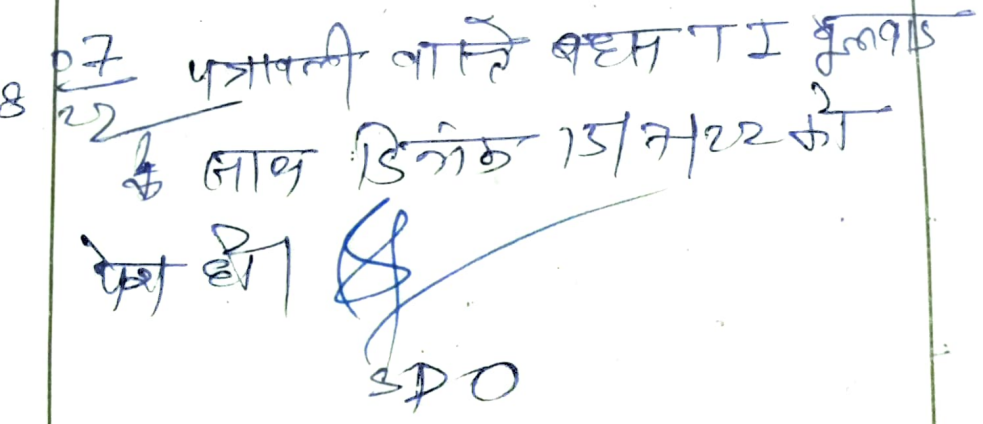 8 07/22 पत्रावली वास्ते बहस T I मूलवाद
के साथ दिनांक 15/7/22 को
पेश हो।
SDO